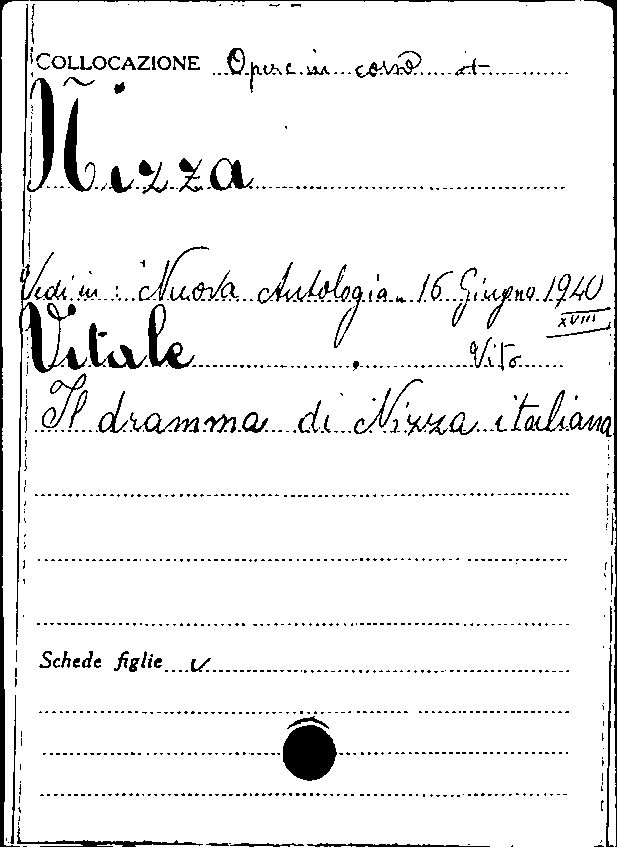 COLLOCAZIONE Opere in corso it
Nizza
Vedi in: Nuova Antologia. 16 Giugno 1940
XVIII
Vitale, Vito
Il dramma di Nizza italiana
Schede figlie v